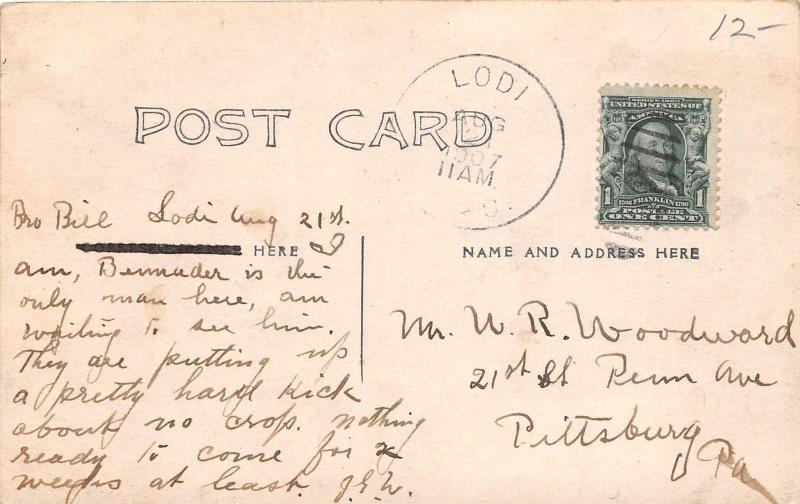 12-
LODI
AUG
21
1907
11AM
O.
POST CARD
SERIES 1902
UNITED STATES OF
AMERICA
1 1706 FRANKLIN 1790 1
POSTAGE
ONE CENT
Bro Bill Lodi Aug 21st.
HERE I
NAME AND ADDRESS HERE
am, Bennader is the
only man here, am
waiting to see him.
They are putting up
a pretty hard kick
about no crop. nothing
ready to come for 2
weeks at least. J.E.W.
Mr. W. R. Woodward
21st St Penn Ave
Pittsburg
Pa